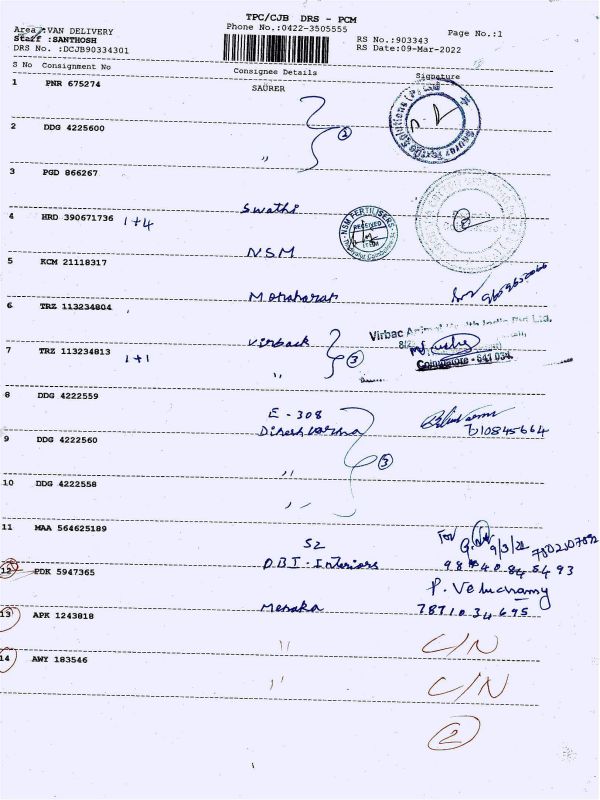 TPC/CJB DRS - PCM
Area : VAN DELIVERY
Phone No.:0422-3505555
Page No.:1
Staff :SANTHOSH
RS No.:903343
DRS No. :DCJB90334301
RS Date:09-Mar-2022
S No Consignment No
Consignee Details
Signature
1 PNR 675274
SAURER
2 DDG 4225600
〃
3 PGD 866267
Swathi
4 HRD 390671736 1+4
N.S.M
NSM FERTILISERS
RECEIVED
5 KCM 21118317
6 TRZ 113234804
Virback
Virbac Animal Health India Pvt Ltd.
7 TRZ 113234813 1+1
〃
3
Coimbatore - 641 034.
8 DDG 4222559
E - 308
9 DDG 4222560
Dinesh Varma
7310845664
3
〃
10 DDG 4222558
〃
11 MAA 564625189
52
9/3/22
12 PDK 5947365
D.B.I - Interiors
P. Veluchamy
13 APK 1243818
Menaka
7871034695
〃
C/N
14 AWY 183546
〃
C/N
2